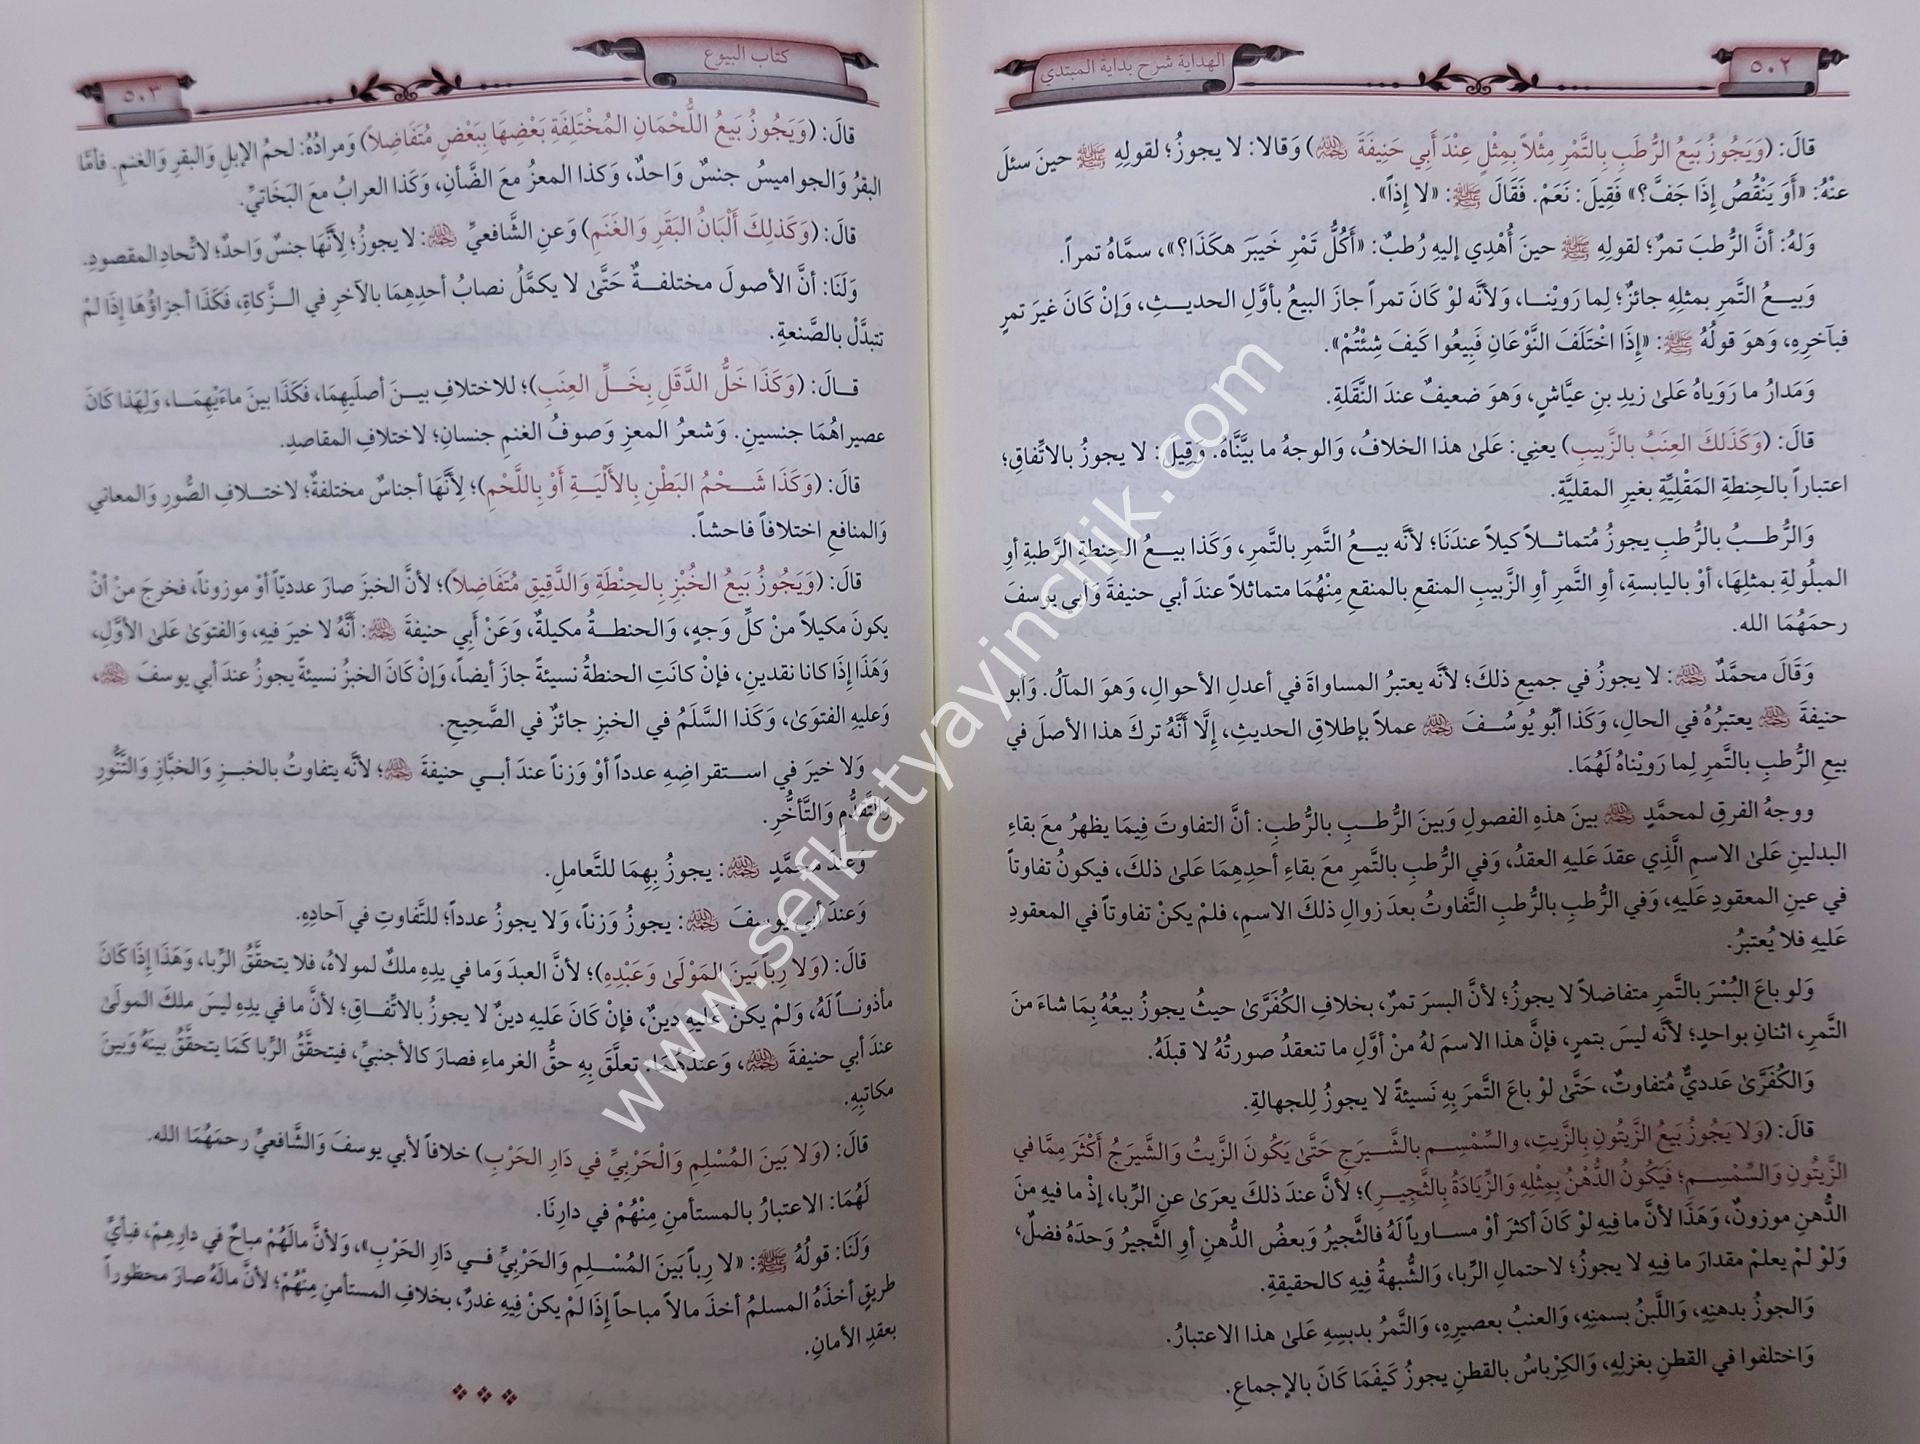 ٥٠٢
الهداية شرح بداية المبتدي
قالَ: (وَيَجُوزُ بَيعُ الرُّطَبِ بِالتَّمْرِ مِثْلاً بِمِثْلٍ عِنْدَ أَبِي حَنِيفَةَ رحمه الله) وَقالا: لا يجوزُ؛ لقولِهِ ﷺ حينَ سئلَ
عنْهُ: «أَوَ يَنْقُصُ إِذَا جَفَّ؟» فَقِيلَ: نَعَمْ. فَقَالَ ﷺ: «لا إِذاً».
وَلهُ: أنَّ الرُّطبَ تمرٌ؛ لقولِهِ ﷺ حينَ أُهْدِي إليهِ رُطبٌ: «أَكُلُّ تَمْرِ خَيبَرَ هكَذَا؟»، سمَّاهُ تمراً.
وَبيـعُ التَّمرِ بمثلِهِ جائزٌ؛ لِما رَوَيْنـا، وَلأنَّه لوْ كَانَ تمراً جازَ البيعُ بأوَّلِ الحديـثِ، وَإنْ كَانَ غيرَ تمرٍ
فبآخرِهِ، وَهوَ قولُهُ ﷺ: «إِذَا اخْتَلَفَ النَّوْعَانِ فَبِيعُوا كَيفَ شِئْتُمْ».
وَمَدارُ ما رَوَياهُ عَلىٰ زيدِ بنِ عيَّاشٍ، وَهوَ ضعيفٌ عندَ النَّقَلةِ.
قالَ: (وَكَذَلكَ العِنَبُ بالزَّبيبِ) يعنِي: عَلىٰ هذا الخلافُ، وَالوجهُ ما بيَّنَّاهُ. وَقِيلَ: لا يجوزُ بالاتِّفاقِ؛
اعتباراً بالحِنطةِ المَقْلِيَّةِ بغيرِ المقليَّةِ.
وَالرُّطـبُ بالرُّطبِ يجوزُ مُتماثـلاً كيلاً عندَنَا؛ لأنَّه بيـعُ التَّمرِ بالتَّمرِ، وَكذا بيـعُ الحِنطةِ الرَّطبةِ أوِ
المبلُولةِ بمثلِهَا، أوْ باليابسةِ، أوِ التَّمرِ أوِ الزَّبيبِ المنقعِ بالمنقعِ مِنْهُمَا متماثلاً عندَ أبي حنيفةَ وَأبي يوسفَ
رحمَهُمَا الله.
وَقَالَ محمَّدٌ رحمه الله: لا يجوزُ في جميعِ ذلكَ؛ لأنَّه يعتبرُ المساواةَ في أعدلِ الأحوالِ، وَهوَ المآلُ. وَأبو
حنيفةَ رحمه الله يعتبرُهُ في الحالِ، وَكَذا أبُو يُوسُـفَ رحمه الله عملاً بإطلاقِ الحديثِ، إلَّا أنَّهُ تركَ هذا الأصلَ في
بيعِ الرُّطبِ بالتَّمرِ لِما رَوَيْناهُ لَهُمَا.
ووجهُ الفرقِ لمحمَّدٍ رحمه الله بينَ هذِهِ الفصولِ وَبينَ الرُّطـبِ بالرُّطبِ: أنَّ التفاوتَ فِيمَا يظهرُ معَ بقاءِ
البدلينِ عَلىٰ الاسمِ الَّذِي عقدَ عَليهِ العقدُ، وَفي الرُّطبِ بالتَّمرِ معَ بقاءِ أحدِهِمَا عَلىٰ ذلكَ، فيكونُ تفاوتاً
في عينِ المعقودِ عَليهِ، وَفي الرُّطبِ بالرُّطبِ التَّفاوتُ بعدَ زوالِ ذلكَ الاسمِ، فلمْ يكنْ تفاوتاً في المعقودِ
عَليهِ فلا يُعتبرُ.
وَلو باعَ البُسْرَ بالتَّمرِ متفاضلاً لا يجوزُ؛ لأنَّ البسرَ تمرٌ، بخلافِ الكُفَرَّىٰ حيثُ يجوزُ بيعُهُ بِمَا شاءَ منَ
التَّمرِ، اثنانِ بواحدٍ؛ لأنَّه ليسَ بتمرٍ، فإنَّ هذا الاسمَ لهُ منْ أوَّلِ ما تنعقدُ صورتُهُ لا قبلَهُ.
وَالكُفَرَّىٰ عَدديٌّ مُتفاوتٌ، حَتَّىٰ لوْ باعَ التَّمرَ بِهِ نَسيئةً لا يجوزُ لِلجهالةِ.
قالَ: (وَلا يَجُوزُ بَيعُ الزَّيتُونِ بِالزَّيتِ، والسِّمْسِـمِ بالشَّـيرَجِ حَتَّىٰ يَكُونَ الزَّيتُ وَالشَّيرَجُ أَكْثَرَ مِمَّا في
الزَّيتُونِ وَالسِّمْسِـمِ؛ فَيَكُونُ الدُّهْنُ بِمِثْلِهِ وَالزِّيَادَةُ بِالثَّجِيـرِ)؛ لأنَّ عندَ ذلكَ يعرَىٰ عنِ الرِّبا، إذْ ما فيهِ منَ
الدُّهنِ موزونٌ، وَهَذا لأنَّ ما فِيهِ لوْ كَانَ أكثرَ أوْ مسـاوياً لَهُ فالثَّجيرُ وَبعضُ الدُّهنِ أوِ الثَّجيرُ وَحدَهُ فضلٌ،
وَلوْ لمْ يعلمْ مقدارَ ما فِيهِ لا يجوزُ؛ لاحتمالِ الرِّبا، وَالشُّبهةُ فِيهِ كالحقيقةِ.
وَالجوزُ بدهنِهِ، وَاللَّبنُ بسمنِهِ، وَالعنبُ بعصيرِهِ، وَالتَّمرُ بدبسِهِ عَلىٰ هذا الاعتبارُ.
وَاختلفوا في القطنِ بغزلِهِ، وَالكِرْباسُ بالقطنِ يجوزُ كَيفَمَا كَانَ بالإجماعِ.
كتاب البيوع
٥٠٣
قالَ: (وَيَجُوزُ بَيعُ اللُّحْمَانِ المُخْتَلِفَةِ بَعْضِهَا بِبَعْضٍ مُتَفَاضِلاً) وَمرادُهُ: لحمُ الإبلِ وَالبقرِ وَالغنمِ. فأمَّا
البقرُ وَالجواميسُ جنسٌ وَاحدٌ، وَكذا المعزُ معَ الضَّأنِ، وَكَذا العرابُ معَ البَخَاتيِّ.
قالَ: (وَكَذلِكَ أَلْبَانُ البَقَرِ وَالغَنَمِ) وَعنِ الشَّافعيِّ رحمه الله: لا يجوزُ؛ لأنَّهَا جنسٌ وَاحدٌ؛ لاتِّحادِ المقصودِ.
وَلَنَا: أنَّ الأصولَ مختلفـةٌ حَتَّىٰ لا يكمَّلُ نصابُ أحدِهِمَا بالآخرِ في الـزَّكاةِ، فَكَذَا أجزاؤُهَا إذَا لمْ
تتبدَّلْ بالصَّنعةِ.
قـالَ: (وَكَذَا خَلُّ الدَّقَلِ بِخَـلِّ العِنَبِ)؛ للاختلافِ بيـنَ أصلَيهِمَا، فَكَذَا بينَ ماءَيْهِمَـا، وَلِهَذَا كَانَ
عصيراهُمَا جنسينِ. وَشعرُ المعزِ وَصوفُ الغنمِ جنسانِ؛ لاختلافِ المقاصدِ.
قالَ: (وَكَذَا شَـحْمُ البَطْنِ بِالأَلْيَـةِ أَوْ بِاللَّحْمِ)؛ لأنَّهَا أجناسٌ مختلفةٌ؛ لاختـلافِ الصُّوَرِ وَالمعاني
وَالمنافعِ اختلافاً فاحشاً.
قالَ: (وَيَجُوزُ بَيعُ الخُبْزِ بِالحِنْطَةِ وَالدَّقِيقِ مُتَفَاضِلاً)؛ لأنَّ الخبزَ صارَ عدديّاً أوْ موزوناً، فخرجَ منْ أنْ
يكونَ مكيلاً منْ كلِّ وَجهٍ، وَالحنطـةُ مكيلةٌ، وَعَنْ أَبي حنيفةَ رحمه الله: أنَّهُ لا خيرَ فيهِ، وَالفتوَىٰ عَلىٰ الأوَّلِ،
وَهَذَا إذَا كانا نقدينِ، فإنْ كانَتِ الحنطةُ نسيئةً جازَ أيضاً، وَإنْ كَانَ الخبزُ نسيئةً يجوزُ عندَ أبي يوسفَ رحمه الله،
وَعليهِ الفتوَىٰ، وَكذا السَّلَمُ في الخبزِ جائزٌ في الصَّحِيحِ.
وَلا خيرَ في استـقراضِهِ عدداً أوْ وَزناً عندَ أبـي حنيفةَ رحمه الله؛ لأنَّه يتفاوتُ بالخبـزِ وَالخبَّازِ وَالتَّنُّورِ
وَالتَّقدُّمِ وَالتَّأخُّرِ.
وَعندَ محمَّدٍ رحمه الله: يجوزُ بِهِمَا للتَّعاملِ.
وَعندَ أبي يوسفَ رحمه الله: يجوزُ وَزناً، وَلا يجوزُ عدداً؛ للتَّفاوتِ في آحادِهِ.
قالَ: (وَلا رِباً بَينَ المَوْلَىٰ وَعَبْدِهِ)؛ لأنَّ العبدَ وَما في يدِهِ ملكٌ لمولاهُ، فلا يتحقَّقُ الرِّبا، وَهَذَا إذَا كَانَ
مأذونـاً لَهُ، وَلمْ يكنْ عَليهِ دينٌ، فإنْ كَانَ عَليهِ دينٌ لا يجوزُ بالاتِّفـاقِ؛ لأنَّ ما في يدِهِ ليسَ ملكَ المولَىٰ
عندَ أبي حنيفةَ رحمه الله، وَعندَهُمَا: تعلَّقَ بِهِ حقُّ الغرماءِ فصارَ كالأجنبيِّ، فيتحقَّقُ الرِّبا كَمَا يتحقَّقُ بينَهُ وَبينَ
مكاتبِهِ.
قالَ: (وَلا بَينَ المُسْلِمِ وَالحَرْبِيِّ في دَارِ الحَرْبِ) خلافاً لأبي يوسفَ وَالشَّافعيِّ رحمَهُمَا الله.
لَهُمَا: الاعتبارُ بالمستأمنِ مِنْهُمْ في دارِنَا.
وَلَنَا: قولُهُ ﷺ: «لا رِباً بَينَ المُسْـلِمِ وَالحَرْبِيِّ فـي دَارِ الحَرْبِ»، وَلأنَّ مالَهُمْ مباحٌ في دارِهِمْ، فبأيِّ
طريقٍ أخذَهُ المسلمُ أخذَ مالاً مباحاً إذَا لمْ يكنْ فِيهِ غدرٌ، بخلافِ المستأمنِ مِنْهُمْ؛ لأنَّ مالَهُ صارَ محظوراً
بعقدِ الأمانِ.
www.sefkatyayincilik.com